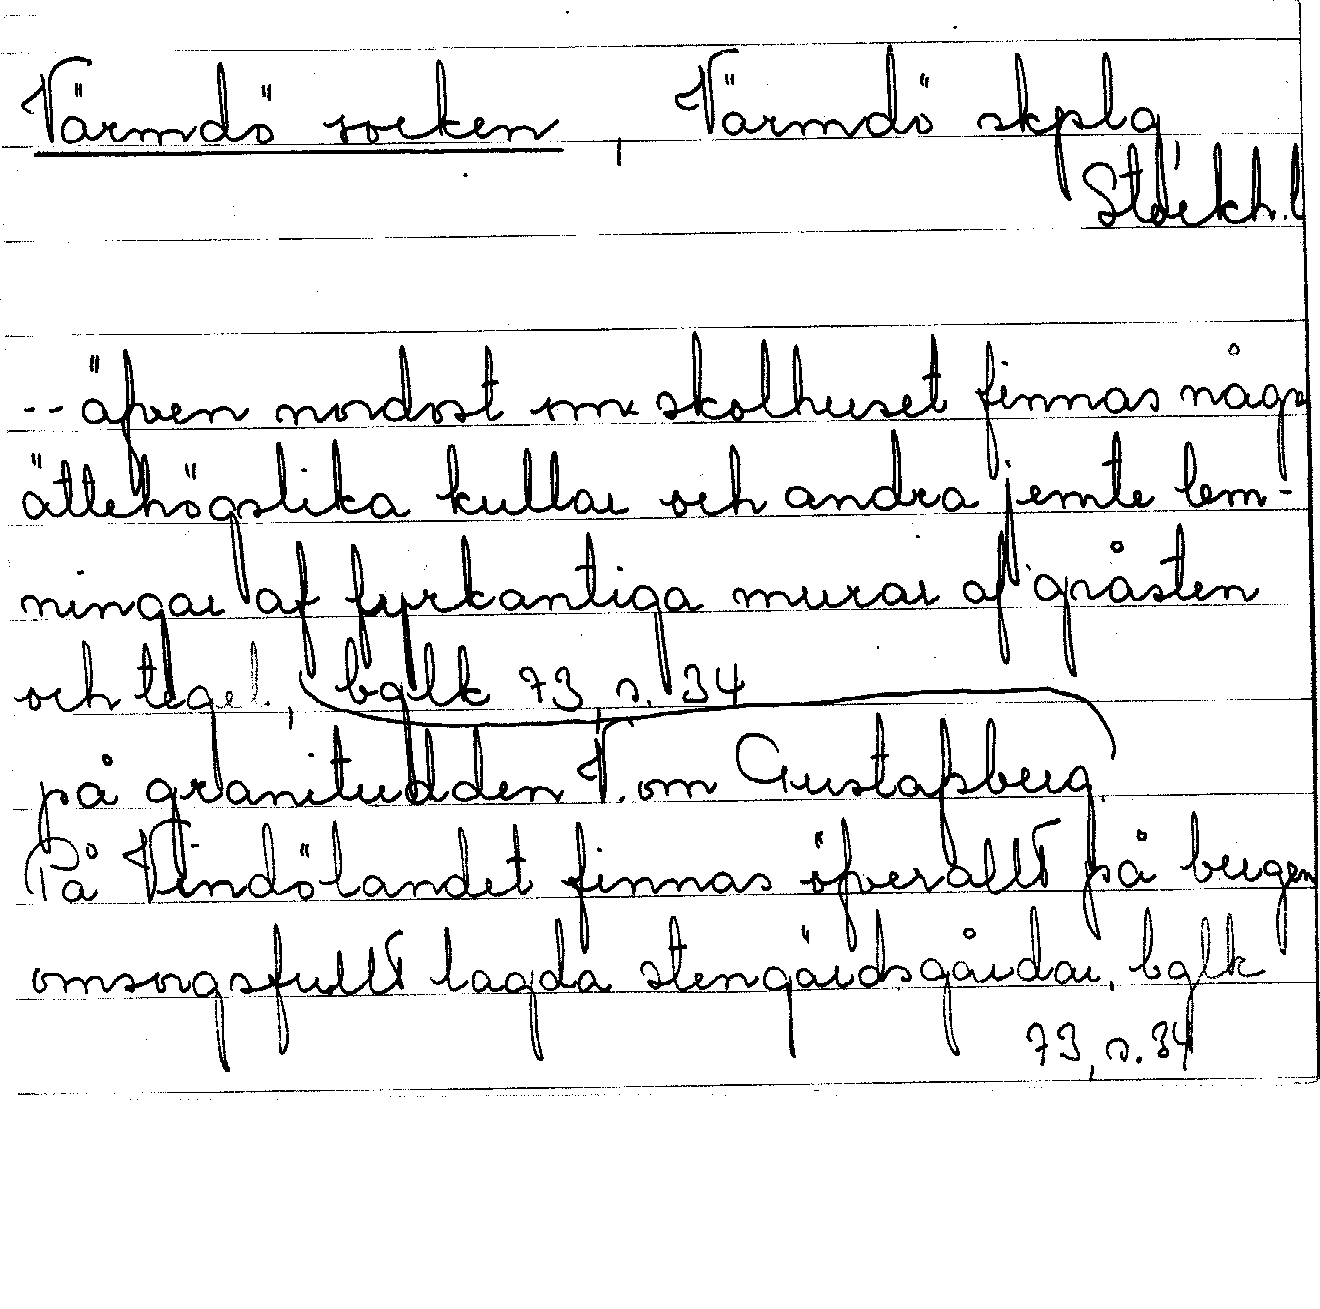 Värmdö socken, Värmdö skplg
Stockh. l
-- äfven nordost om skolhuset finnas någa
ättehögslika kullar och andra jemte lem-
ningar af fyrkantiga murar af gråsten
och tegel., bglk 73, s. 34
på granitudden V. om Gustafsberg.
På Vindölandet finnas öfverallt på bergen
omsorgsfullt lagda stengärdsgårdar. bglk
73, s. 34